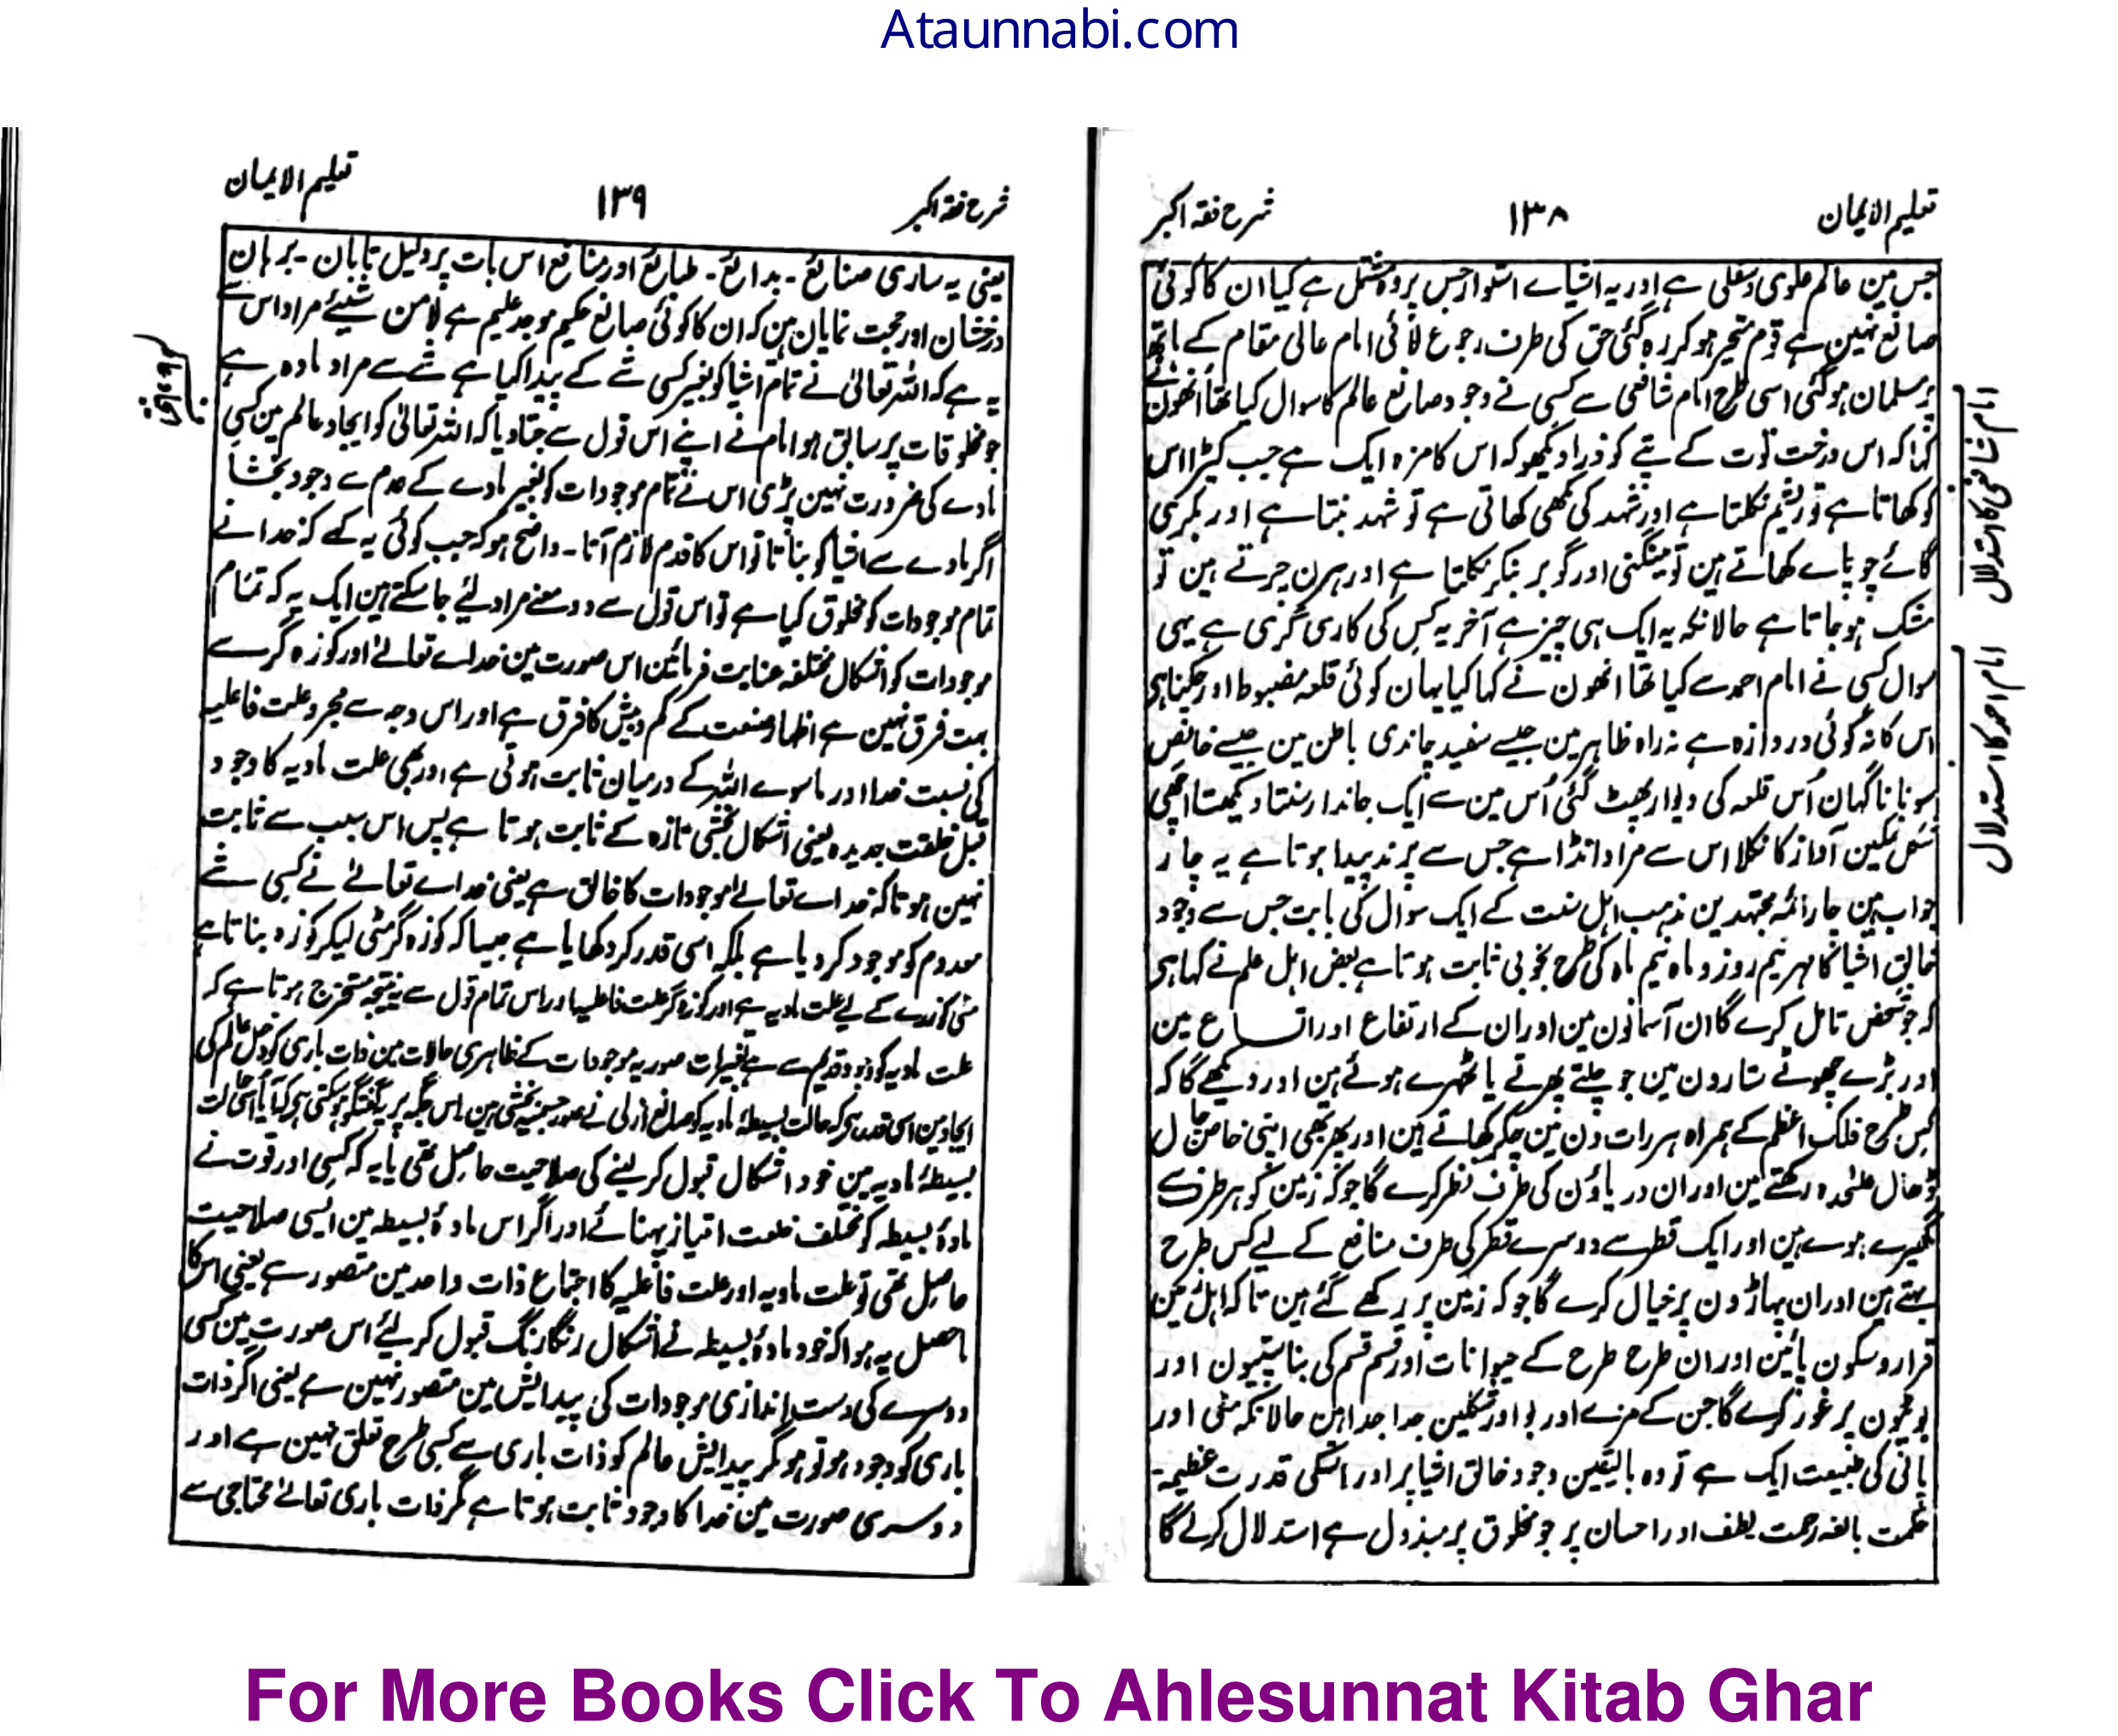 Ataunnabi.com
تعلیم الایمان
۱۳۸
شرح فقہ اکبر
جس مین عالم علوی وسفلی ہے اور یہ اشیاے استوار جس پر وہ مشتمل ہے کیا ان کا کوئی
صانع نہین ہے قوم متحیر ہو کر رہ گئی حق کی طرف رجوع لائی امام عالی مقام کے ہاتھ
پر مسلمان ہو گئی اسی طرح امام شافعی سے کسی نے وجود صانع عالم کا سوال کیا تھا اُنھون نے
کہا کہ اس درخت توت کے پتے کو ذرا دیکھو کہ اس کا مزہ ایک ہے جب کیڑا اس
کو کھاتا ہے تو ریشم نکلتا ہے اور شہد کی مکھی کھاتی ہے تو شہد بنتا ہے اور بکری
گائے چوپاے کھاتے ہین تو مینگنی اور گوبر بنکر نکلتا ہے اور ہرن چرتے ہین تو
مشک ہو جاتا ہے حالانکہ یہ ایک ہی چیز ہے آخر یہ کس کی کاری گری ہے یہی
سوال کسی نے امام احمد سے کیا تھا انھون نے کہا کیا یہان کوئی قلعہ مضبوط اور چکنا ہی
اس کا نہ کوئی دروازہ ہے نہ راہ ظاہر مین جیسے سفید چاندی باطن مین جیسے خالص
سونا ناگہان اُس قلعہ کی دیوار پھٹ گئی اُس مین سے ایک جاندار سنتا دیکھتا اچھی
شکل نمکین آواز کا نکلا اس سے مراد انڈا ہے جس سے پرند پیدا ہوتا ہے یہ چار
جواب ہین چار ائمہ مجتہدین مذہب اہل سنت کے ایک سوال کی بابت جس سے وجود
خالق اشیا کا مہر نیم روز و ماہ نیم ماہ کی طرح بخوبی ثابت ہوتا ہے بعض اہل علم نے کہا ہی
کہ جو شخص تامل کرے گا ان آسمانون مین اور ان کے ارتفاع اور اتساع مین
اور بڑے چھوٹے ستارون مین جو چلتے پھرتے یا ٹھہرے ہوئے ہین اور دیکھے گا کہ
کس طرح فلک اعظم کے ہمراہ ہر رات دن مین چکر کھاتے ہین اور پھر بھی اپنی خاص چال
ڈھال علٰحدہ رکھتے ہین اور ان دریاؤن کی طرف نظر کرے گا جو کہ زمین کو ہر طرف سے
گھیرے ہوے ہین اور ایک قطر سے دوسرے قطر کی طرف منافع کے لیے کس طرح
بہتے ہین اور ان پہاڑون پر خیال کرے گا جو کہ زمین پر رکھے گئے ہین تا کہ اہل زمین
قرار و سکون پائین اور ان طرح طرح کے حیوانات اور قسم قسم کی بناسپتیون اور
بوٹیون پر غور کرے گا جن کے مزے اور بو اور شکلین جدا جدا ہین حالانکہ مٹی اور
پانی کی طبیعت ایک ہے تو وہ بالیقین وجود خالق اشیا پر اور اسکی قدرت عظیمہ
حکمت بالغہ رحمت لطف اور احسان پر جو مخلوق پر مبذول ہے استدلال کرلے گا
امام شافعی کا استدلال
امام احمد کا استدلال
شرح فقہ اکبر
۱۳۹
تعلیم الایمان
یعنی یہ ساری صنائع - بدائع - طبائع اور منافع اس بات پر دلیل تابان - برہان
درخشان اور حجت نمایان ہین کہ ان کا کوئی صانع حکیم موجد علیم ہے لامن شیئے مراد اس سے
یہ ہے کہ اللہ تعالیٰ نے تمام اشیا کو بغیر کسی شے کے پیدا کیا ہے شے سے مراد مادہ ہے
جو مخلوقات پر سابق ہو امام نے اپنے اس قول سے جتا دیا کہ اللہ تعالیٰ کو ایجاد عالم مین کسی
مادے کی ضرورت نہین پڑی اس نے تمام موجودات کو بغیر مادے کے عدم سے وجود بخشا
اگر مادے سے اشیا کو بناتا تو اس کا قدم لازم آتا - واضح ہو کہ جب کوئی یہ کہے کہ خدا نے
تمام موجودات کو مخلوق کیا ہے تو اس قول سے دو معنے مراد لیے جا سکتے ہین ایک یہ کہ تمام
موجودات کو اشکال مختلفہ عنایت فرمائین اس صورت مین خداے تعالے اور کوزہ گر سے
بہت فرق نہین ہے اظہار صنعت کے کم و بیش کا فرق ہے اور اس وجہ سے مجرد علت فاعلیہ
کی نسبت خدا اور ماسوے اللہ کے درمیان ثابت ہوتی ہے اور بھی علت مادیہ کا وجود
قبل خلقت جدیدہ یعنی اشکال بخشی تازہ کے ثابت ہوتا ہے پس اس سبب سے ثابت
نہین ہوتا کہ خداے تعالے موجودات کا خالق ہے یعنی خداے تعالے نے کسی شے
معدوم کو موجود کر دیا ہے بلکہ اسی قدر کر دکھایا ہے جیسا کہ کوزہ گر مٹی لیکر کوزہ بناتا ہے
مٹی کوزے کے لیے علت مادیہ ہے اور کوزہ گر علت فاعلیہ اور اس تمام قول سے یہ نتیجہ مستخرج ہوتا ہے کہ
علت مادیہ کو وجود قدیم سے ہے تغیرات صوریہ موجودات کے ظاہری حالات مین ذات باری کو دخل عالم کی
ایجاد مین اسی قدر ہی کہ حالت بسیطۂ مادیہ کو صانع ازلی نے صور جسمیہ بخشی ہین اس جگہ پر یہ گفتگو ہو سکتی ہی کہ آیا اسی حالت
بسیطۂ مادیہ مین خود اشکال قبول کر لینے کی صلاحیت حاصل تھی یا یہ کہ کسی اور قوت نے
مادۂ بسیطہ کو مختلف خلعت امتیاز پہنائے اور اگر اس مادۂ بسیطہ مین ایسی صلاحیت
حاصل تھی تو علت مادیہ اور علت فاعلیہ کا اجتماع ذات واحد مین متصور ہے یعنی اس کا
ماحصل یہ ہوا کہ خود مادۂ بسیطہ نے اشکال رنگارنگ قبول کر لیے اس صورت مین کسی
دوسرے کی دست اندازی موجودات کی پیدایش مین متصور نہین ہے یعنی اگر ذات
باری کو وجود ہو تو ہو مگر پیدایش عالم کو ذات باری سے کسی طرح تعلق نہین ہے اور
دوسری صورت مین خدا کا وجود ثابت ہوتا ہے مگر ذات باری تعالے محتاجی سے
For More Books Click To Ahlesunnat Kitab Ghar